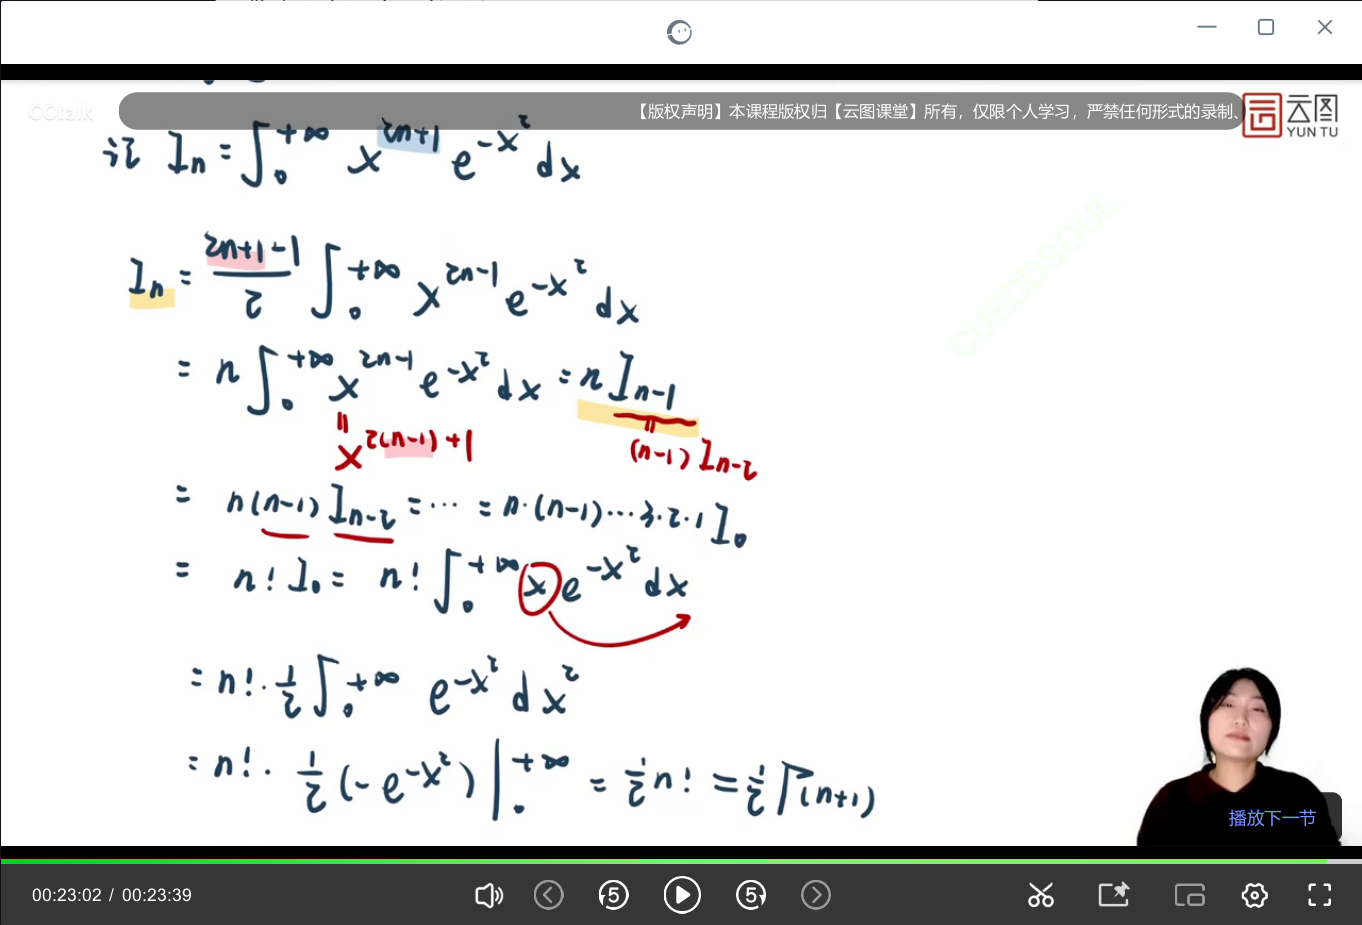 CCtalk
【版权声明】本课程版权归【云图课堂】所有，仅限个人学习，严禁任何形式的录制、
云图
YUN TU
记 Iₙ = ∫₀^{+∞} x^{2n+1} e^{-x²} dx
Iₙ = \frac{2n+1-1}{2} ∫₀^{+∞} x^{2n-1} e^{-x²} dx
= n ∫₀^{+∞} x^{2n-1} e^{-x²} dx = n I_{n-1}
= x^{2(n-1)+1}
= (n-1) I_{n-2}
= n(n-1) I_{n-2} = ⋯ = n·(n-1)⋯3·2·1 I₀
= n! I₀ = n! ∫₀^{+∞} x e^{-x²} dx
= n! · \frac{1}{2} ∫₀^{+∞} e^{-x²} dx²
= n! · \frac{1}{2} (-e^{-x²}) |₀^{+∞} = \frac{1}{2} n! = \frac{1}{2} Γ(n+1)
播放下一节
00:23:02 / 00:23:39
5
5